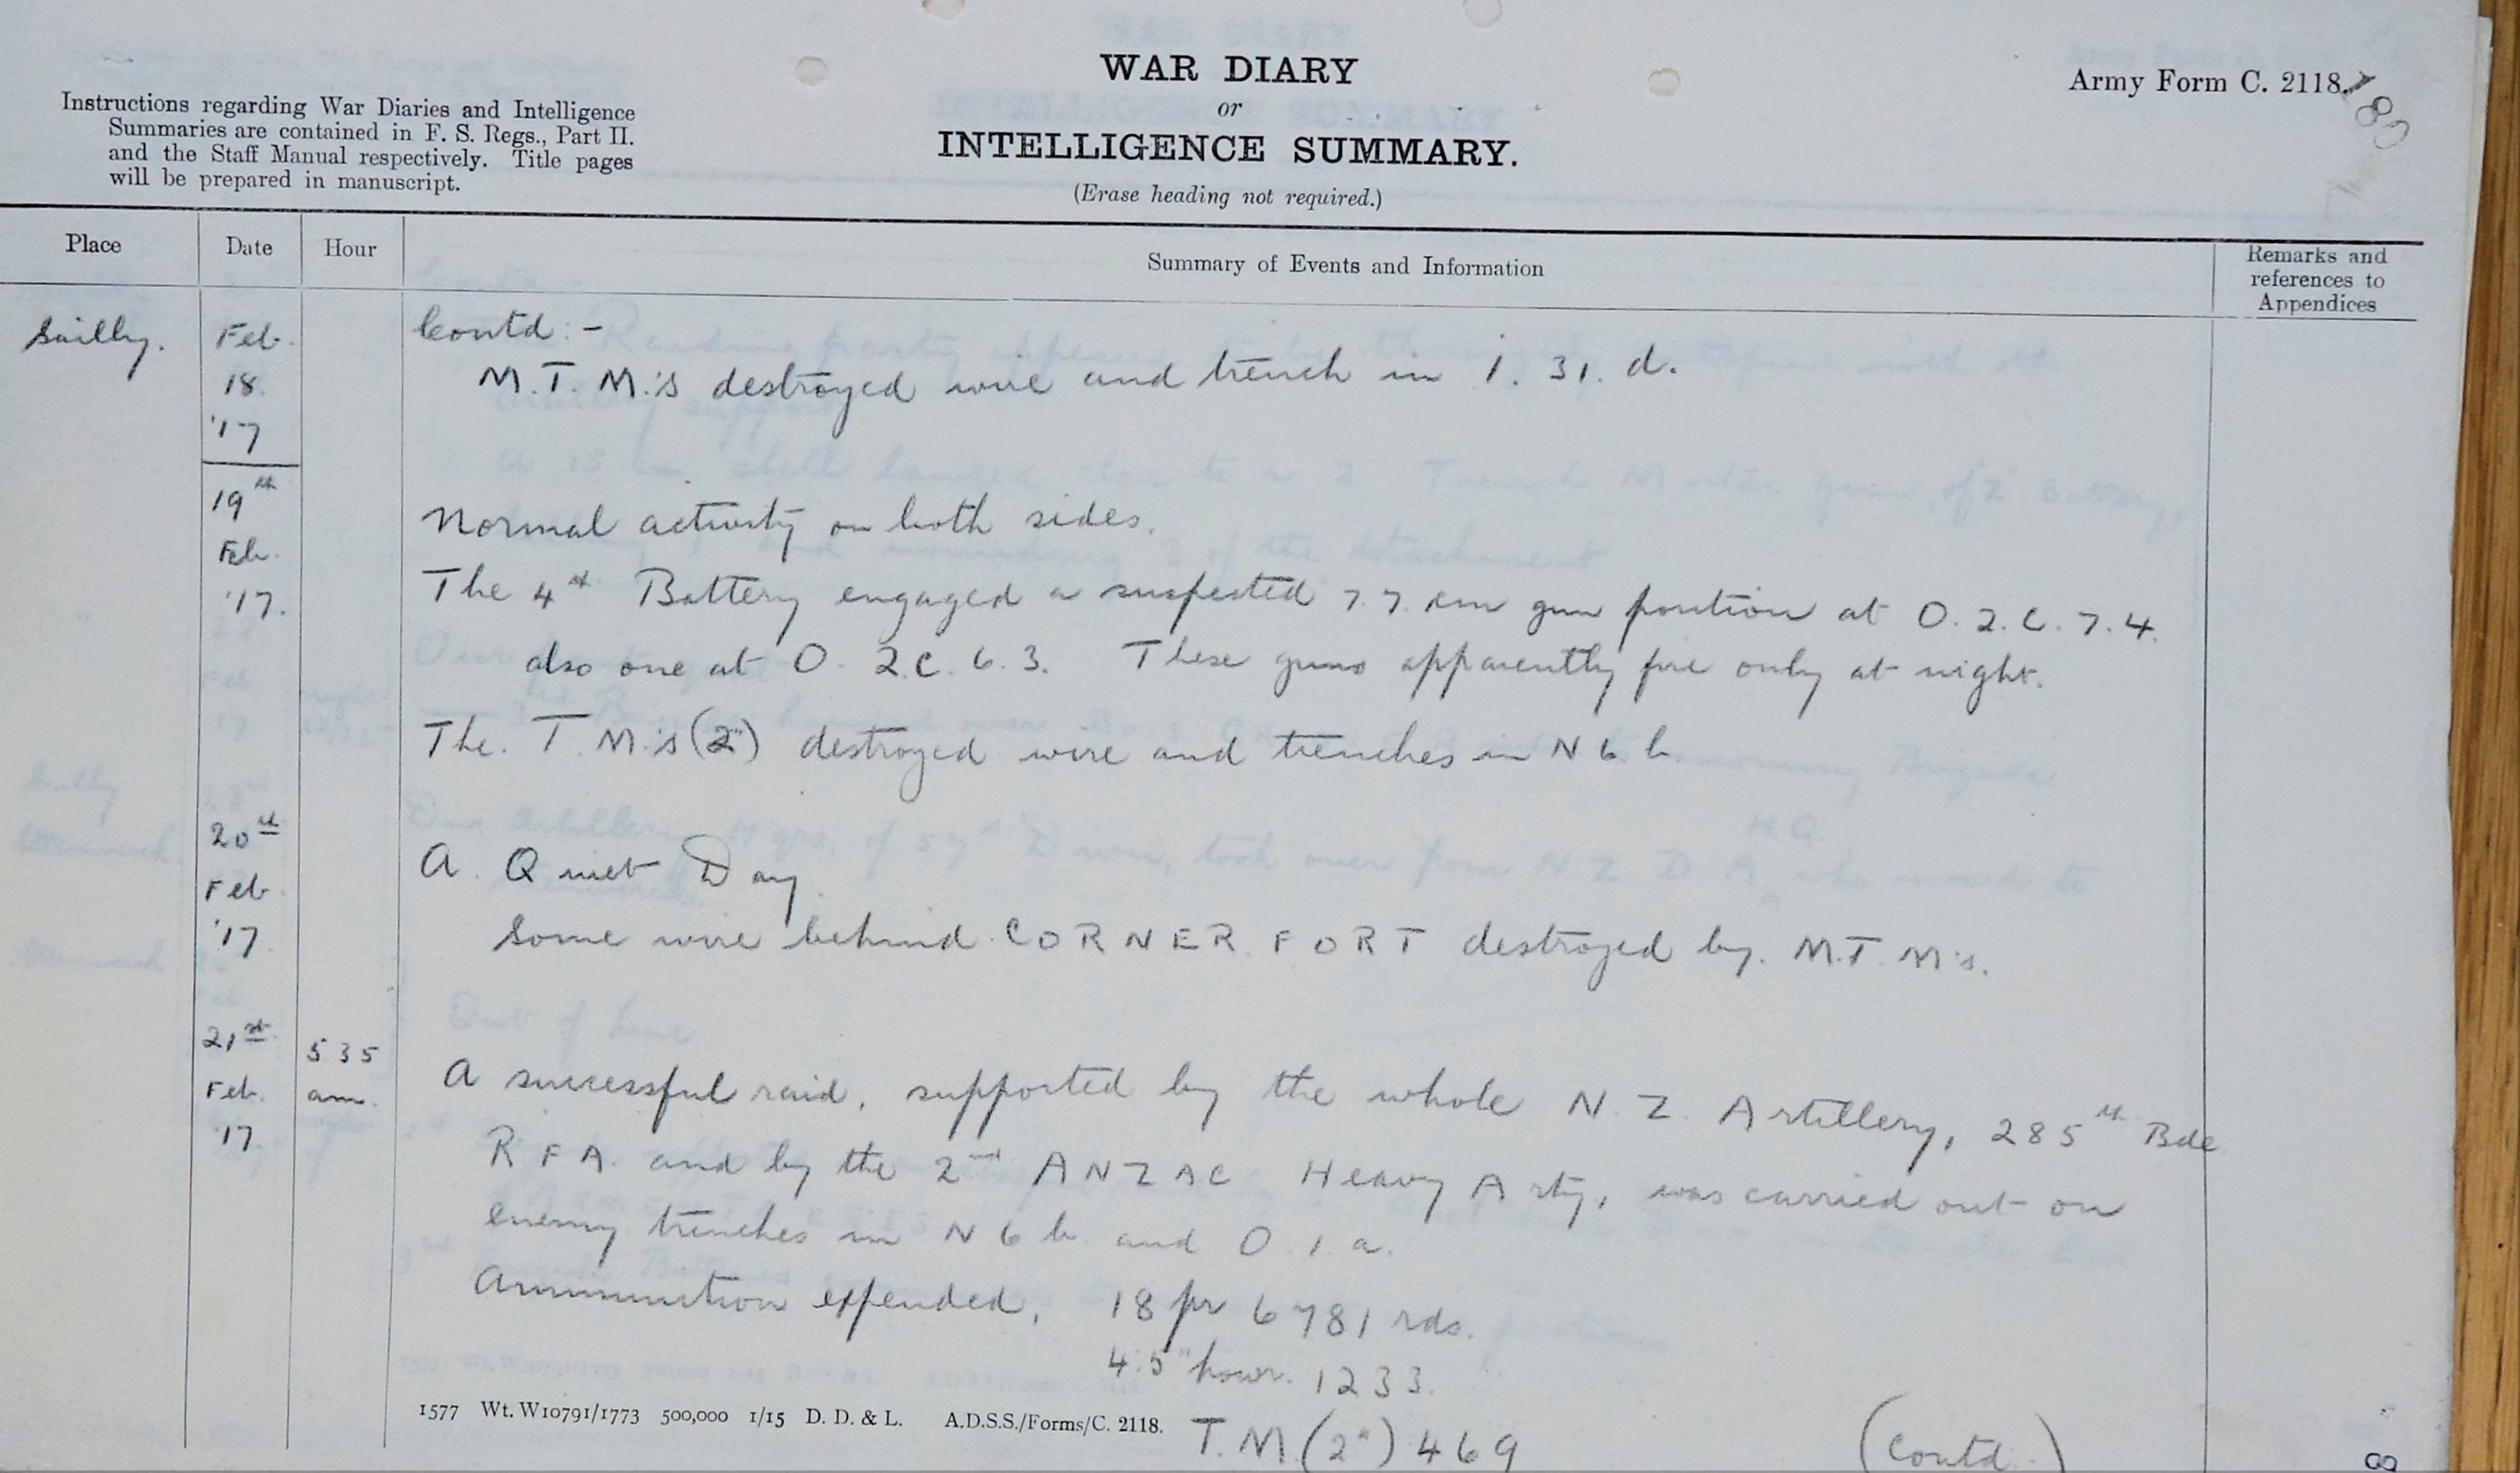 WAR DIARY
or
INTELLIGENCE SUMMARY.
(Erase heading not required.)
Army Form C. 2118.
180
Instructions regarding War Diaries and Intelligence
Summaries are contained in F. S. Regs., Part II.
and the Staff Manual respectively. Title pages
will be prepared in manuscript.
Place
Date
Hour
Summary of Events and Information
Remarks and
references to
Appendices
Sailly.
Feb.
18.
'17
Contd:-
M.T.M.'s destroyed wire and trench in 1. 31. d.
19th
Feb.
'17.
Normal activity on both sides.
The 4th Battery engaged a suspected 7.7. cm gun position at O. 2. C. 7. 4.
also one at O. 2.C. 6. 3. These guns apparently fire only at night.
The. T.M.'s (2") destroyed wire and trenches in N 6 b
20th
Feb.
'17
A. Quiet Day.
Some wire behind CORNER FORT destroyed by. M.T.M's.
21st
Feb.
'17.
5 35
am.
A successful raid, supported by the whole N. Z. Artillery, 285th Bde
R F A. and by the 2nd ANZAC Heavy Arty, was carried out on
enemy trenches in N 6 b. and O. 1. a.
Ammunition expended, 18 pr 6781 rds.
4.5" howr. 1233.
T.M (2") 469
(Contd.)
1577 Wt. W10791/1773 500,000 1/15 D. D. & L. A.D.S.S./Forms/C. 2118.